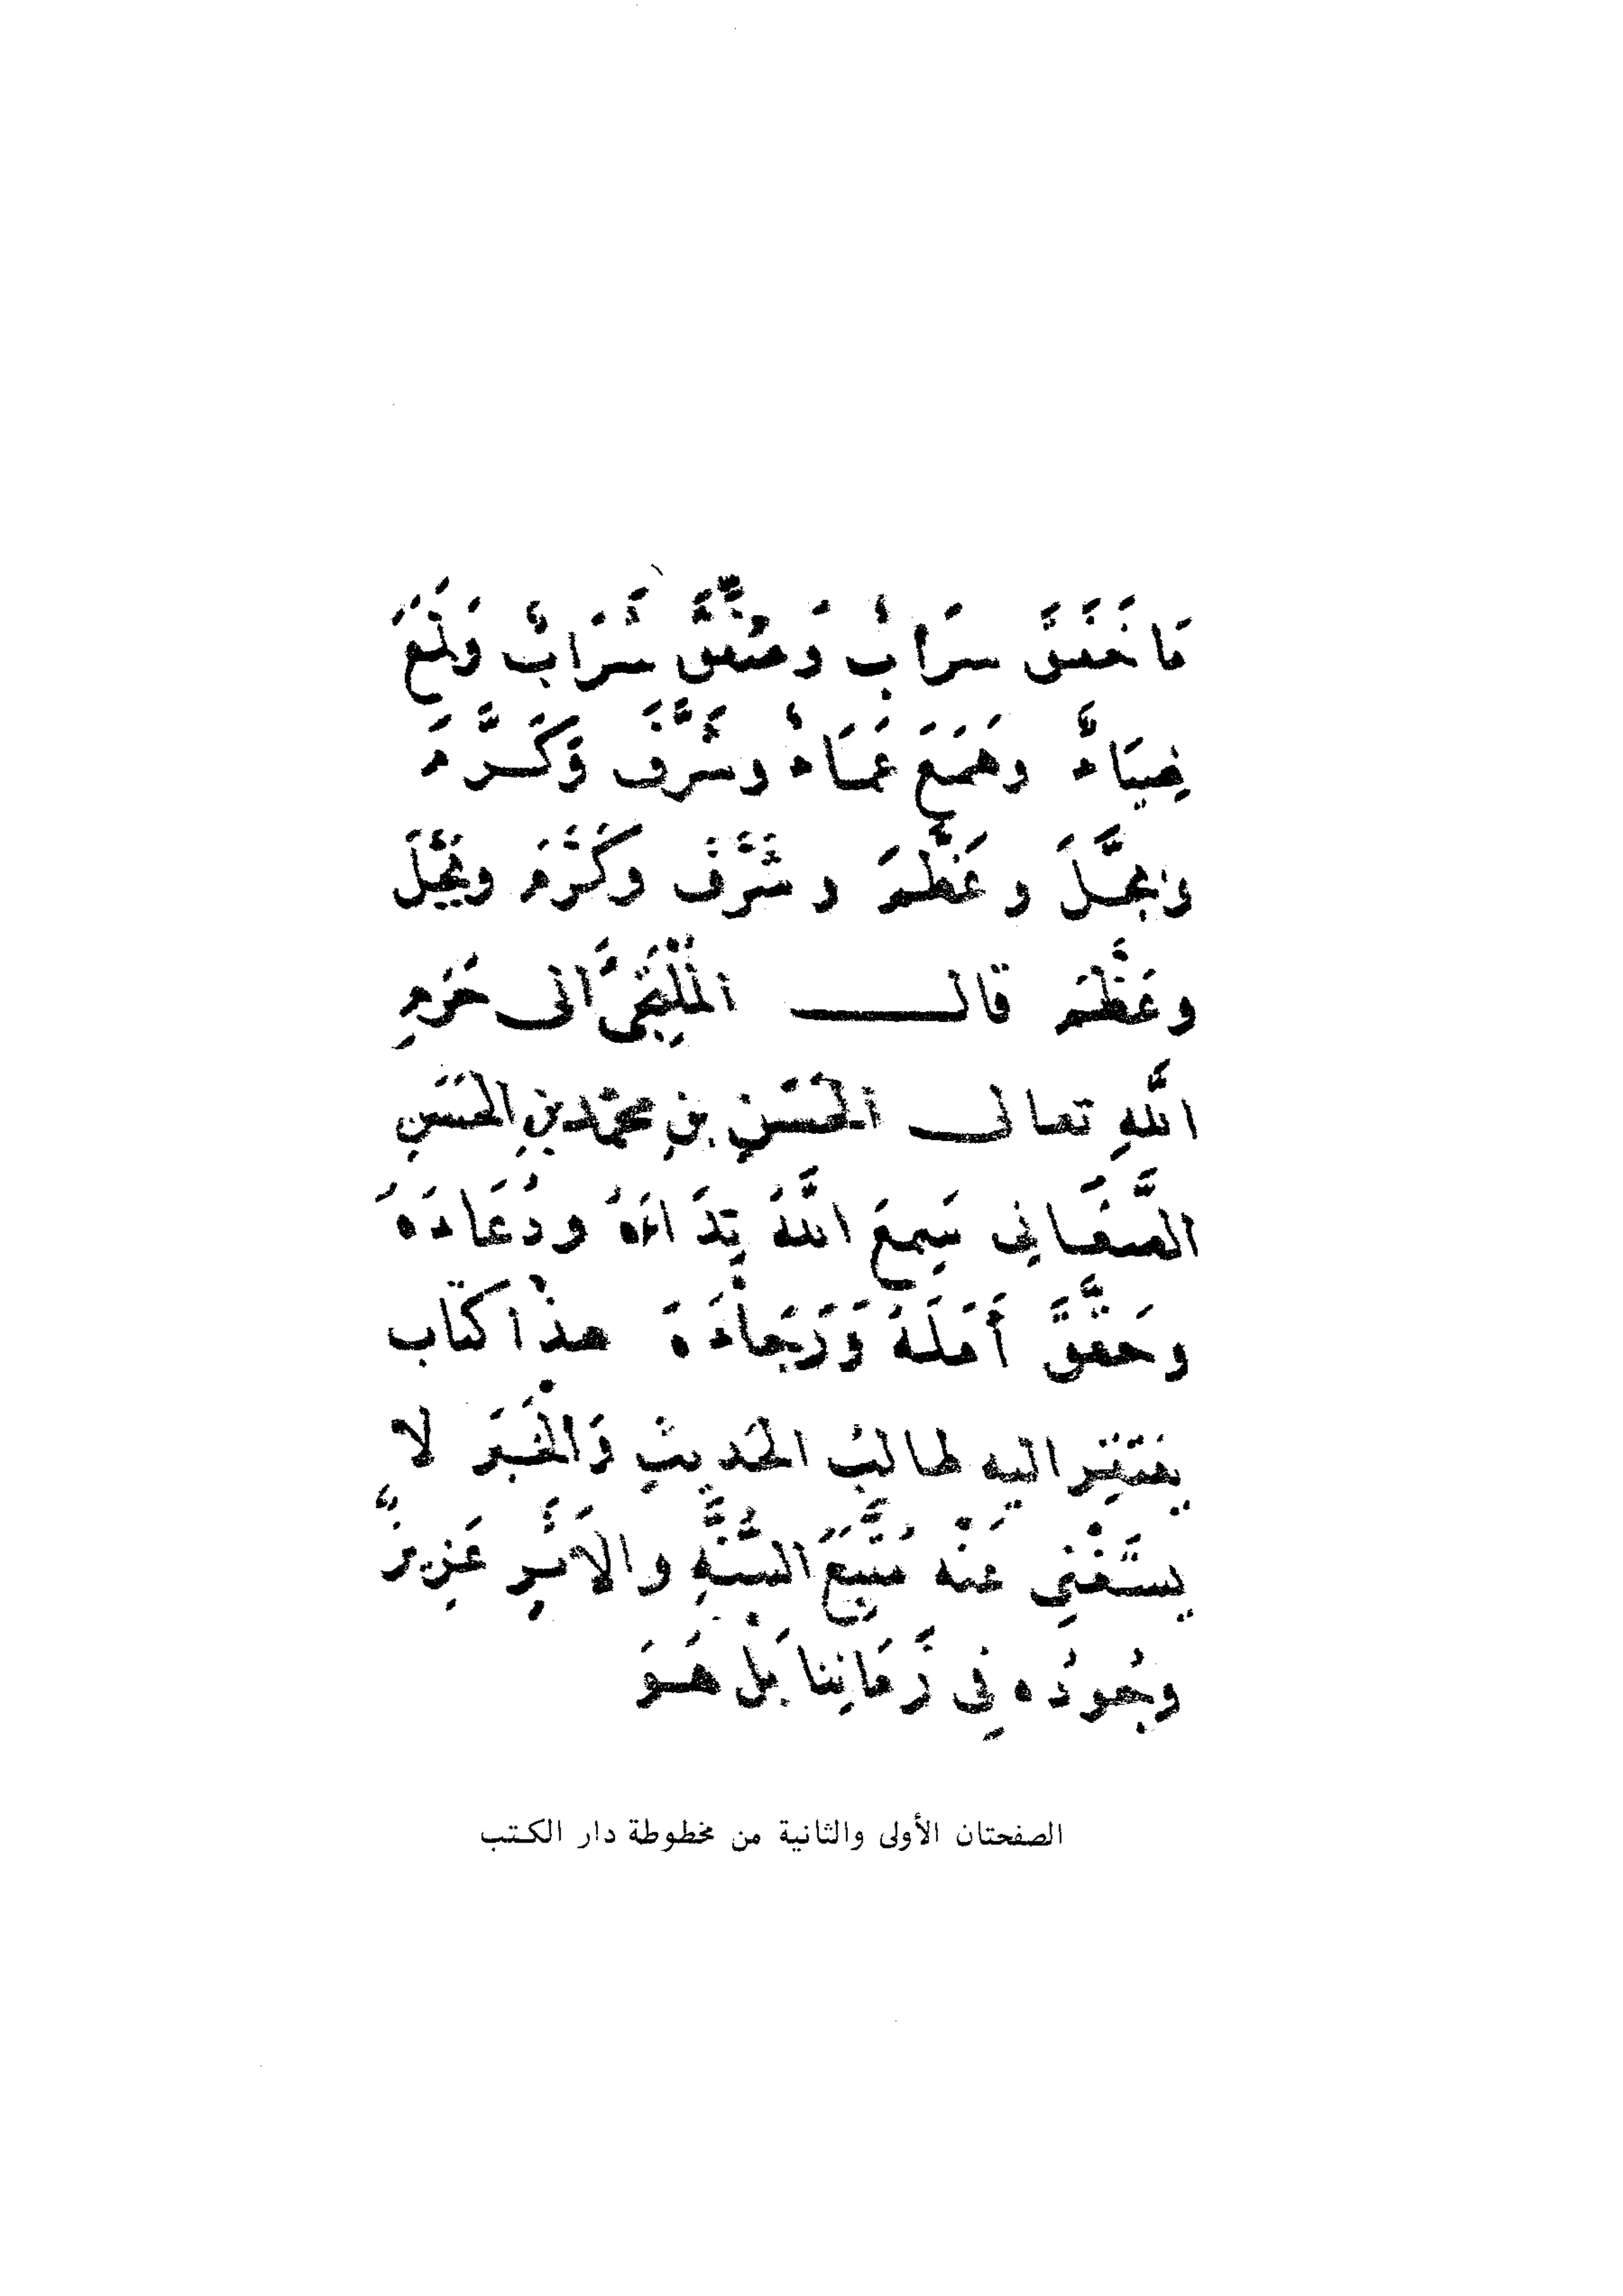 مَا خَفَقَ سَرَابٌ وَصُفِّقَ شَرَابٌ وَلَمَعَ
ضِيَاءٌ وَهَمَعَ عَمَاءٌ وشَرَّفَ وَكَرَّمَ
وبَجَّلَ وعَظَّمَ وشَرَّفَ وكَرَّمَ وبَجَّلَ
وعَظَّمَ قال المُلْتَجِئُ الى حَرَمِ
اللهِ تعالى الحَسَن بن محمّد بنِ الحَسَنِ
الصَّغَانِي سَمِعَ اللهُ نِدَاءَهُ ودُعَاءَهُ
وحَقَّقَ أَمَلَهُ وَرَجَاءَهُ هذا كتاب
يفتَقِر اليه طالِبُ الحَديثِ وَالخَبَر لا
يستَغْنِي عَنْه مُتَتَبِّعُ السُّنَّةِ والاَثَرِ عَزِيزٌ
وجُودُه فِي زَمَانِنا بَل هَوَ
الصفحتان الأولى والثانية من مخطوطة دار الكتب